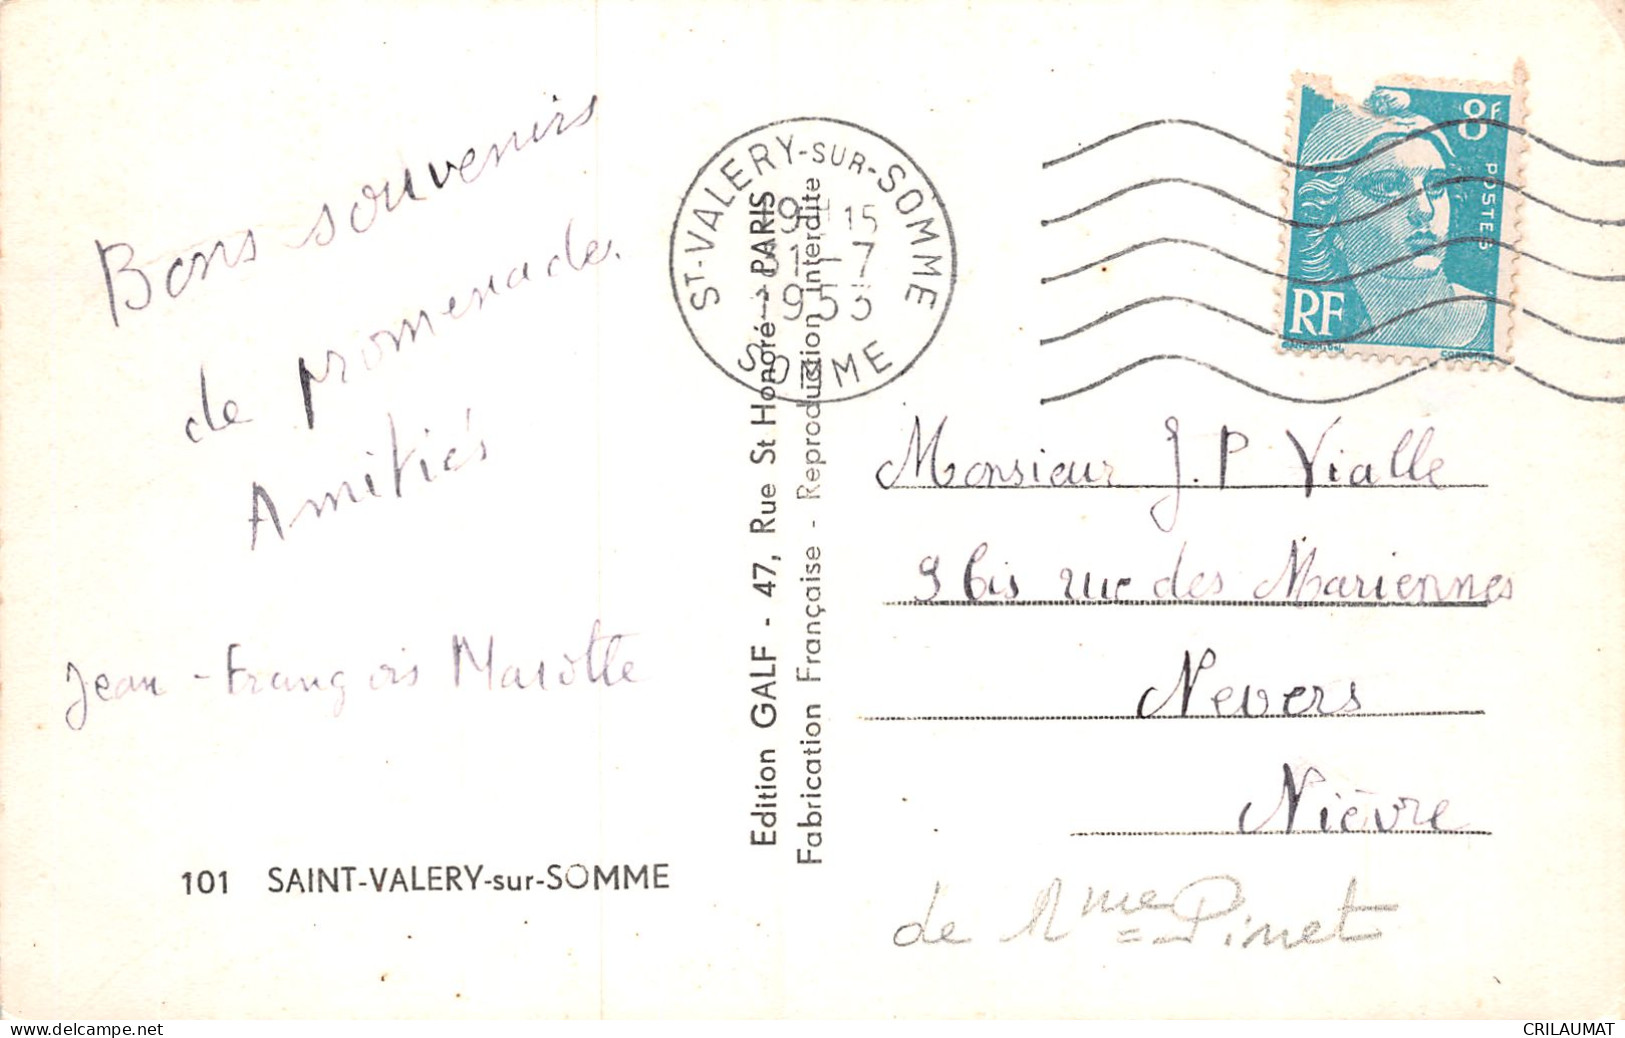 Bons souvenirs
de promenade.
Amitiés
Jean-François Marotte
101 SAINT-VALERY-sur-SOMME
Edition GALF - 47, Rue St Honoré - PARIS
Fabrication Française - Reproduction interdite
ST-VALERY-SUR-SOMME
15
7
SOMME
8F
POSTES
RF
GANDON, Del.
CORTOT SC
Monsieur J.P Vialle
9 bis rue des Mariennes
Nevers
Nièvre
de Mme Pinet
CRILAUMAT